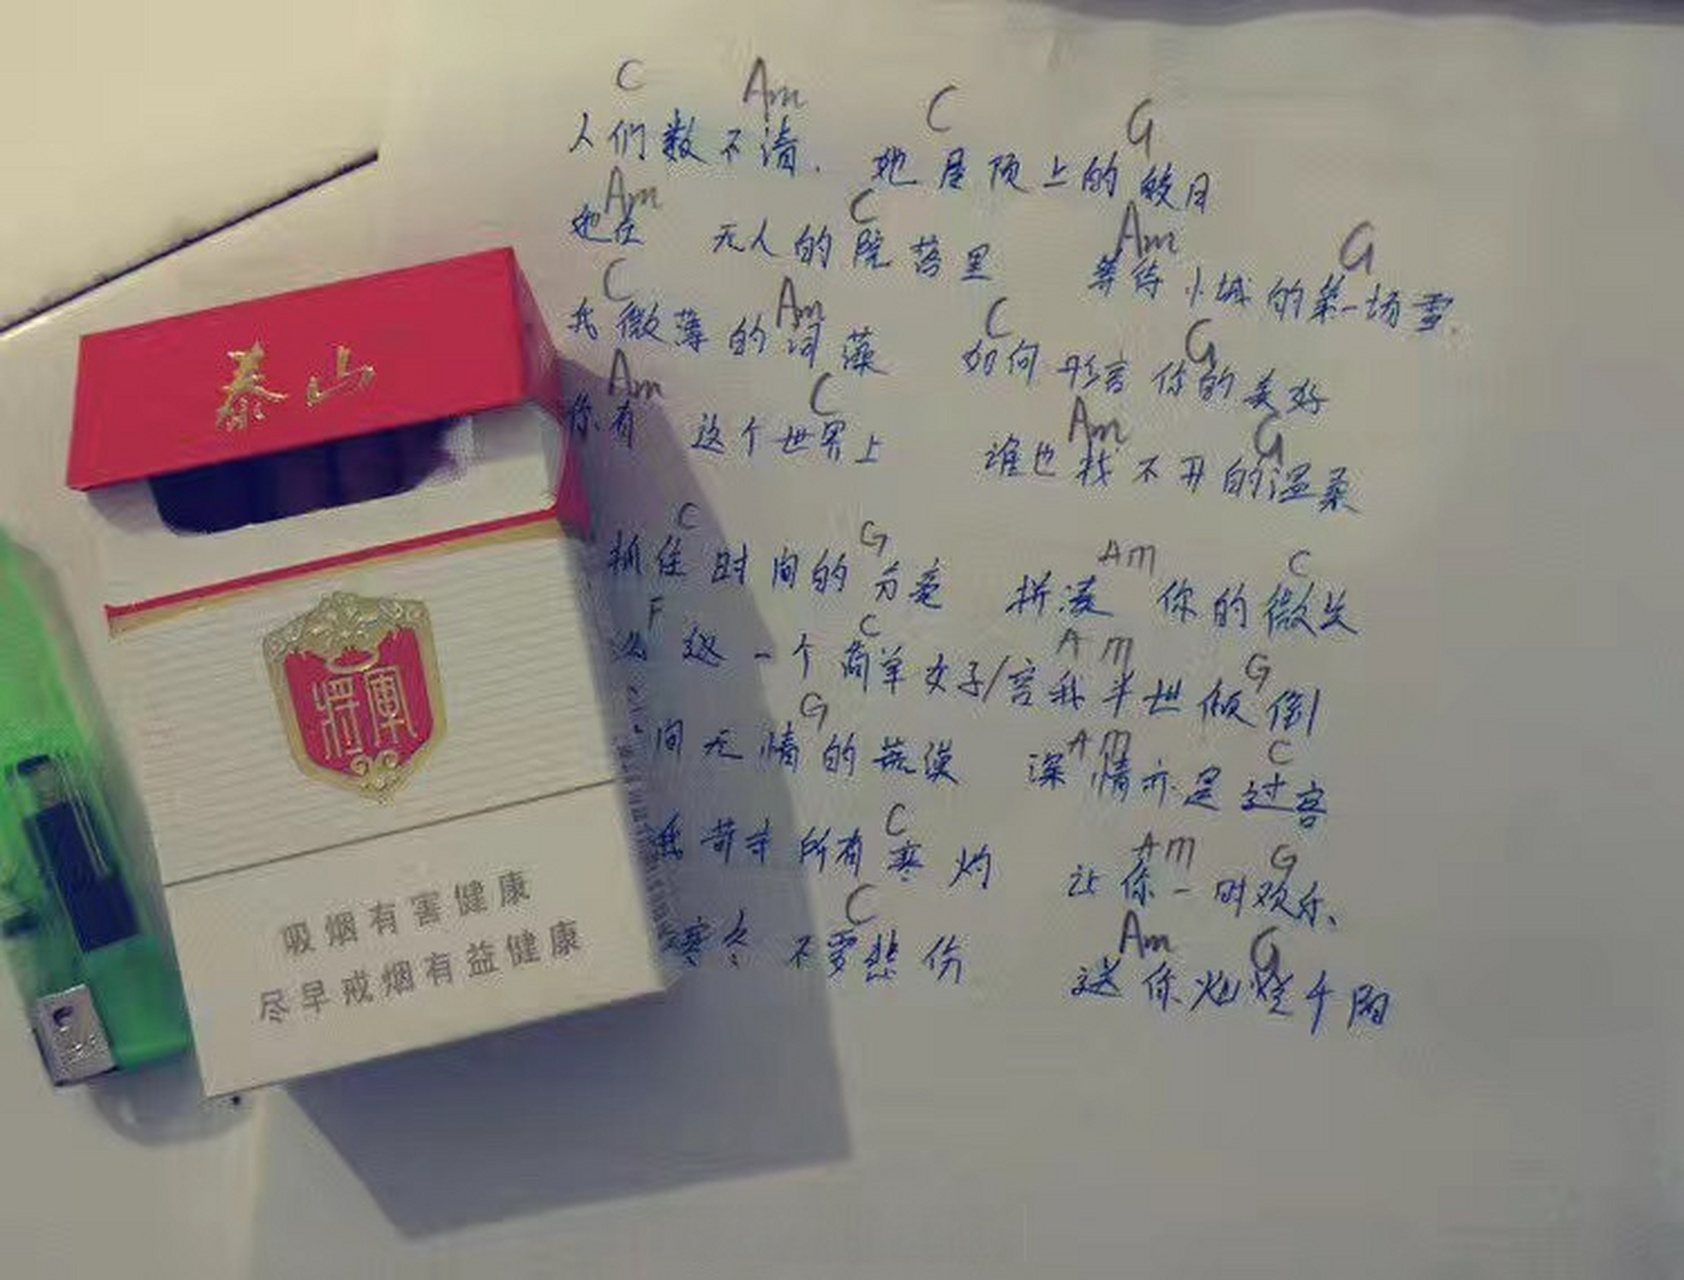 C Am C G
人们数不清. 她屋顶上的皎月
Am C Am G
她在 无人的院落里 等待小城的第一场雪.
C Am C G
我微薄的词藻 如何形言你的美好
Am C Am G
你有 这个世界上 谁也找不开的温柔
C G Am C
抓住时间的分毫 拼凑 你的微笑
F C Am G
这一个简单女子/害我半世倾倒
G Am C
间无情的荒漠 深情亦是过客
C Am G
我 所有寒灼 让你一时欢乐、
C Am G
寒冬 不要悲伤 送你灿烂千阳
泰山
將軍
吸烟有害健康
尽早戒烟有益健康